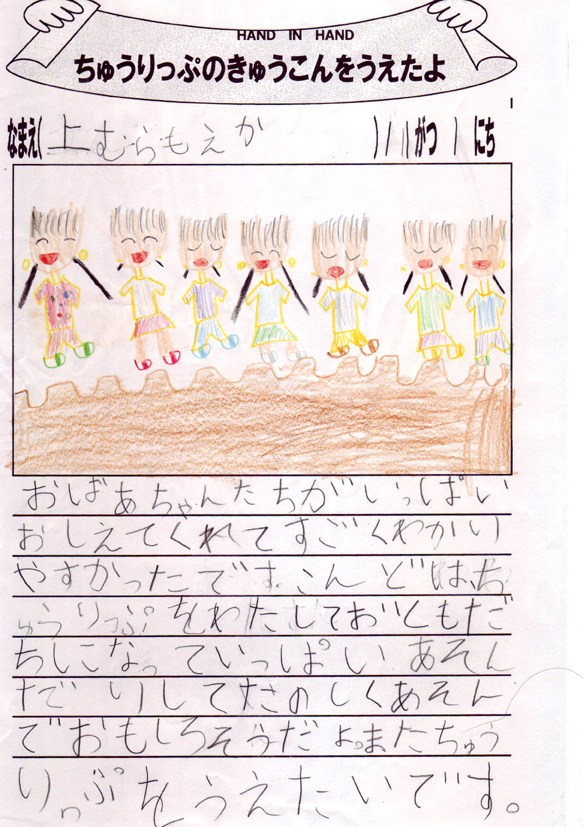 HAND IN HAND
ちゅうりっぷのきゅうこんをうえたよ
なまえ( 上むらもえか ) 11がつ 1にち
おばあちゃんたちがいっぱい
おしえてくれてすごくわかり
やすかったです。こんどは、ち
ゅうりっぷをわたしておともだ
ちになっていっぱいあそん
だりしてたのしくあそん
でおもしろそうだよ。またちゅう
りっぷをうえたいです。